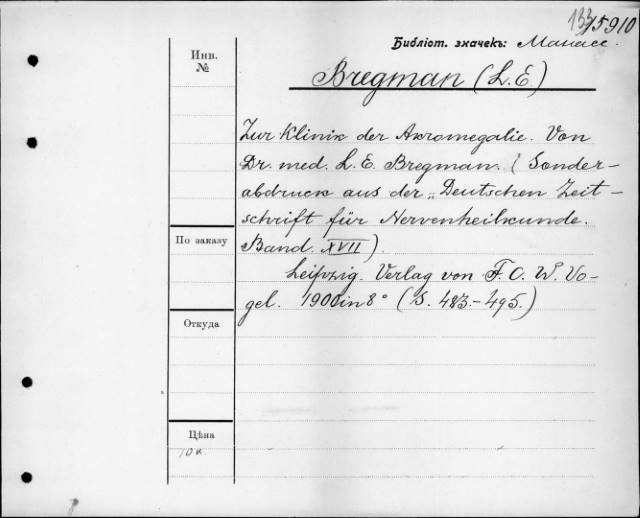 133/15910
Библіот. значекъ: Манасе.
Инв.
№
Bregman (L. E)
Zur Klinik der Akromegalie. Von
Dr. med. L. E. Bregman. (Sonder-
abdruck aus der „Deutschen Zeit-
schrift für Nervenheilkunde.
Band. XVII).
По заказу
Leipzig. Verlag von F. C. W. Vo-
gel. 1900 in 8° (S. 483.-495.)
Откуда
Цѣна
10 к.